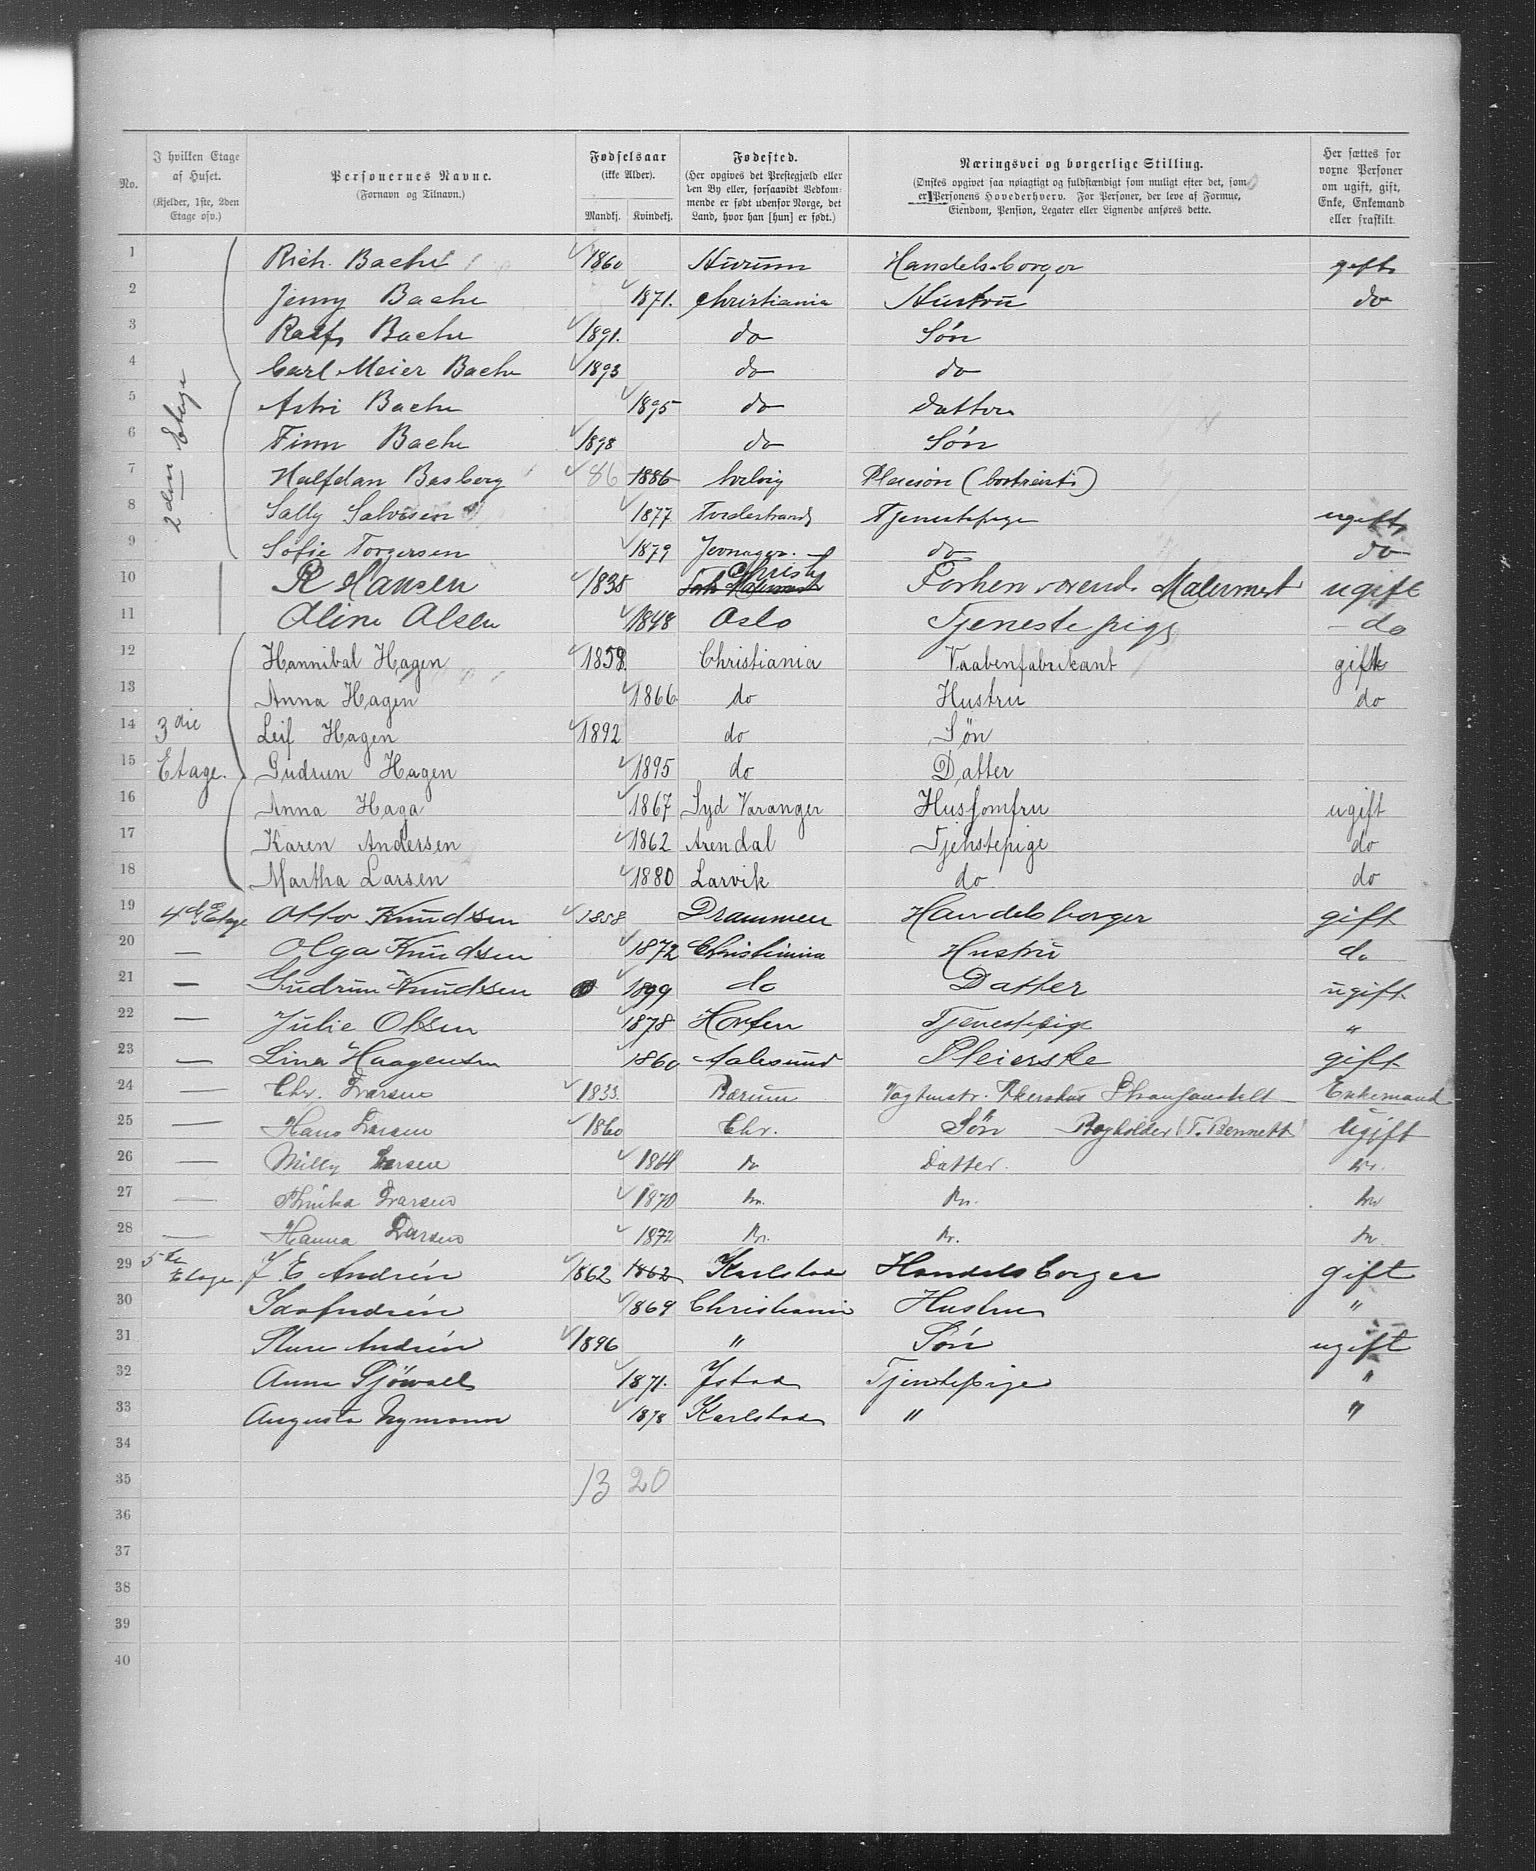 No.
I hvilken Etage af Huset. (Kjelder, 1ste, 2den Etage osv.)
Personernes Navne. (Fornavn og Tilnavn.)
Fødselsaar (ikke Alder). Mandkj. Kvindekj.
Fødested. (Her opgives det Prestegjæld eller den By eller, forsaavidt Vedkommende er født udenfor Norge, det Land, hvor han [hun] er født.)
Næringsvei og borgerlige Stilling. (Ønskes opgivet saa nøiagtigt og fuldstændigt som muligt efter det, som er Personens Hovederhverv. For Personer, der leve af Formue, Eiendom, Pension, Legater eller Lignende anføres dette.
Her sættes for voxne Personer om ugift, gift, Enke, Enkemand eller fraskilt.
2den Etage
1 Rich. Bache 1860 Hurum Handelsborger gift
2 Jenny Bache 1871. Christiania Hustru do
3 Ralf Bache 1891. do Søn
4 Carl Meier Bache 1893 do do
5 Astri Bache 1895 do Datter
6 Finn Bache 1898 do Søn
7 Halfdan Basberg 86 1886 Pleiesøn
8 Sally Salvesen 1877 Tvedestrand Tjenestepige ugift
9 Sofie Torgersen 1879 Jevnager. do do
10 R Hansen 1835 Christ Forhenværend. Malermest ugift
11 Oline Olsen 1848 Oslo Tjenestepige do
12 Hannibal Hagen 1858. Christiania Vaabenfabrikant gift
13 Anna Hagen 1866 do Hustru do
14 3die Leif Hagen 1892 do Søn
15 Etage. Gudrun Hagen 1895 do Datter
16 Anna Haga 1867 Syd Varanger Husjomfru ugift
17 Karen Andersen 1862 Arendal Tjenstepige do
18 Martha Larsen 1880 Larvik do do
19 4de Etage Otto Knudsen 1858 Drammen Handelsborger gift
20 — Olga Knudsen 1872 Christiania Hustru do
21 — Gudrun Knudsen 1899 do Datter ugift
22 — Julie Olsen 1878 Horten Tjenestepige "
23 — Lina Haagensen 1860 Aalesund Pleierske gift
24 — Chr. Larsen 1833. Bærum Vagtmstr. Akershus Strafanstalt Enkemand
25 — Hans Larsen 1860 Chr. Søn Bogholder (T. Bennett) Ugift
26 — Milly Larsen 1864 do Datter. do.
27 — Larsen 1870 do. do. do
28 — Hanna Larsen 1872 do. do. do
29 5te Etage J E Andrén 1862 1862 Karlstad Handelsborger gift
30 Ida Andrén 1869 Christiania Hustru "
31 Sture Andrén 1896 " Søn ugift
32 Anna Sjöwall 1871. Ystad Tjenstepige "
33 Augusta Nymann 1878 Karlstad " "
34
35 13 20
36
37
38
39
40